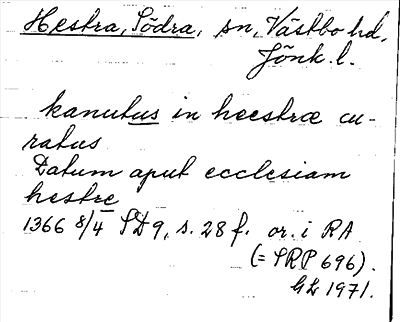 Hestra, Södra, sn, Västbo hd,
Jönk. l.
kanutus in heestræ cu-
ratus
Datum aput ecclesiam
hestre
1366 8/4 SD 9, s. 28 f. or. i RA
(= SRP 696).
GL 1971.